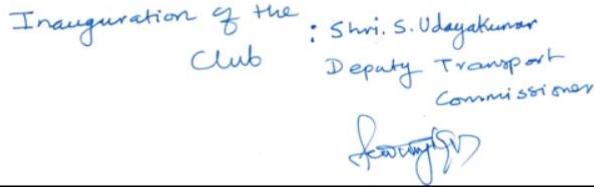 Inauguration of the
Club
: Shri. S. Udayakumar
Deputy Transport
Commissioner